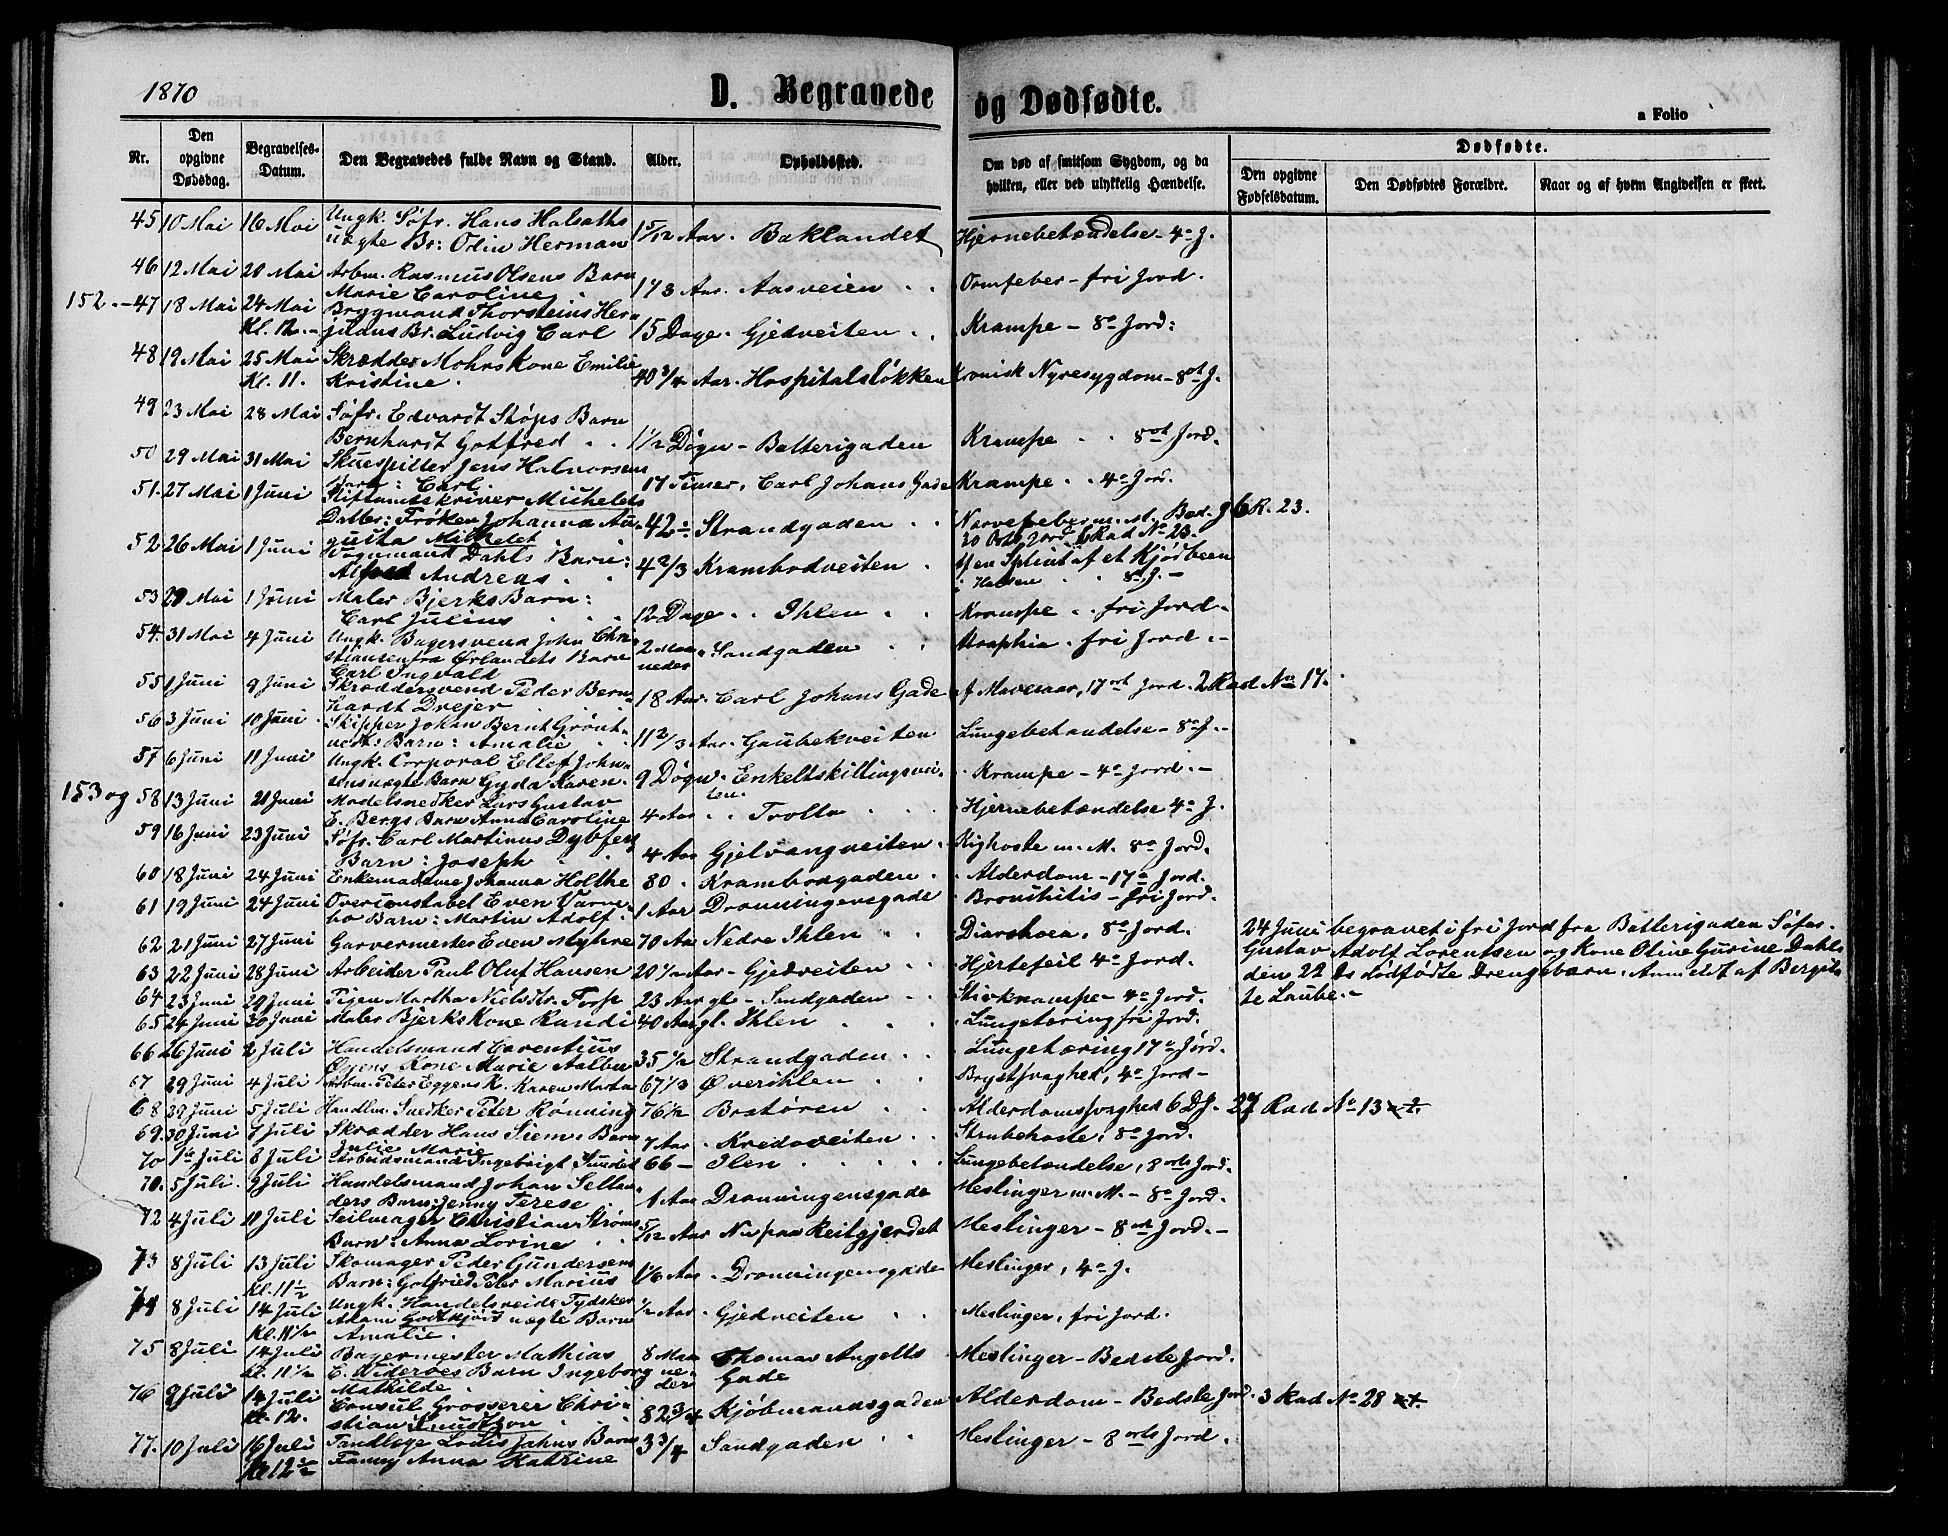 1870
D. Begravede og Dødfødte.
a Folio
Nr.
Den opgivne Dødsdag.
Begravelses-Datum.
Den Begravedes fulde Navn og Stand.
Alder.
Opholdssted.
Om død af smitsom Sygdom, og da hvilken, eller ved ulykkelig Hændelse.
Dødfødte.
Den opgivne Fødselsdatum.
Den Dødfødtes Forældre.
Naar og af hvem Angivelsen er skeet.
45 10 Mai 16 Mai Ungk. Søfr. Hans Halsaths
uægte Br: Odin Herman 1 5/12 Aar. Baklandet Hjernebetændelse - 4de J.
46 12 Mai 20 Mai Arbm. Rasmus Olsens Barn
Marie Caroline Aar. Aasveien fri Jord.
152.- 47 18 Mai 24 Mai Brygmand Thorsteins Her-
Kl. 12 Br. Ludvig Carl 15 Dage. Gjedveiten Krampe - 8o Jord:
48 19 Mai 25 Mai Skrædder Mohrs Kone Emilie
Kl. 11. Kristine. 40 3/4 Aar. Hospitalsløkken Kronisk Nyresygdom - 8ot J.
49 23 Mai 28 Mai Søfr. Edvardt Støps Barn
Bernhardt Gotfred 1 1/2 Døgn - Batterigaden Krampe 8ot Jord.
50 29 Mai 31 Mai Skuespiller Jens Halvorsens
Barn: Carl. 17 Timer. Carl Johans Gade Krampe 4o Jord.
51. 27 Mai 1 Juni Stiftamtskriver Michelets
Datter: Frøken Johanna Au-
gusta Michelet 42 Strandgaden Nervefeber m. st. Bed. J. 6 R. 23.
30 Orts Jord 6 Rad No 23.
52 26 Mai 1 Juni Vognmand Dahls Barn:
Alfred Andreas 4 2/3 Krambodveiten af en Splint af et Kjødbeen
i Halsen 8o J. -
53 29 Mai 1 Juni Maler Bjerks Barn:
Carl Julius 12 Dage Ihlen Krampe fri Jord.
54 31 Mai 4 Juni Ungk. Bagersvend John Chri-
stiansen fra Ørlandets Barn
Carl Ingvald 2 Maa-neder Sandgaden fri Jord.
55 1 Juni 9 Juni Skræddersvend Peder Bern-
hardt Drejer 18 Aar. Carl Johans Gade af Mavesaar, 17ort Jord. 2 Rad No 17.
56 3 Juni 10 Juni Skipper Johan Bernt Grønt-
vedts Barn: Amalie 11 2/3 Aar. Gaubekveiten Lungebetændelse - 8o J.
57 6 Juni 11 Juni Ungk. Corporal Ellef John-
sens uægte Barn Gyda Karen 9 Døgn. Enkeltskillingsvei-
ten. Krampe - 4o Jord. -
153 og 58 13 Juni 21 Juni Modelsnedker Lars Gustav
E. Bergs Barn Anna Caroline 4 Aar Trolla Hjernebetændelse 4o J.
59 16 Juni 23 Juni Søfr. Carl Martinus
Barn: Joseph 4 Aar Gjelvangveiten Kighoste m. M. 8o Jord.
60 18 Juni 24 Juni Enkemadame Johanna Holthe 80 Krambodgaden Alderdom - 17o Jord.
61 19 Juni 24 Juni Overconstabel Even Varne-
bo Barn: Martin Adolf 1 Aar Dronningensgade Bronchitis - fri Jord.
62 21 Juni 27 Juni Garvermester Even Myhre 70 Aar Nedre Ihlen Diarrhoea, 8o Jord.
63 22 Juni 28 Juni Arbeider Paul Oluf Hansen 20 1/2 Aar - Gjedveiten Hjertefeil 4o Jord.
24 Juni begravet i fri Jord fra Batterigaden Søfar.
Gustav Adolf Lorentsen og Kone Oline Gurine Dahls
den 22 Ds dødfødte Drengebarn. Anm 22 7 af Bergit-
te Laube.-
64 23 Juni 29 Juni Pigen Martha Nielsdtr. Torp 23 Aar gl - Sandgaden Stivkrampe - 4o Jord.
65 24 Juni 30 Juni Maler Bjerks Kone Randi 40 Aar gl. Ihlen Lungetæring fri Jord.
66 26 Juni 2 Juli Handelsmand Lorentius
Øyens Kone Marie Aalbu 35 1/2 Strandgaden Lungetæring 17o Jord.
67 29 Juni 4 Juli Arbm. Peter Eggens K. Karen Marta 67 1/3 Øverihlen Brystsvaghed, 4o Jord -
68 29 Juni 5 Juli Handlm. Snedker Peter Rønning 76 1/2 Bratøren Alderdomssvaghed 6 DJ. 27 Rad No 13
69. 30 Juni 7 Juli Skrædder Hans Siems Barn
Julie Marie 7 Aar Kredoveiten Strubehoste, 8o Jord.
70 1 Juli 8 Juli Arbeidsmand Ingebrigt 66 - Ilen Lungebetændelse, 8 orts Jord.
70. 5 Juli 9 Juli Handelsmand Johan Sellan-
ders Barn: Jenny Terese 1 Aar Dronningensgade Meslinger m. M. - 8o Jord.
72 4 Juli 11 Juli Seilmager Christian Strøms
Barn: Anna Lorine 5/12 Aar Nu paa Reitgjerdet Meslinger - 8ort Jord. -
73 8 Juli 13 Juli Skomager Peder Gundersens
Kl. 11 1/2 Barn: Gotfried Peter Marius 1 1/6 Aar - Dronningensgade Meslinger, 4o J.
74 8 Juli 14 Juli Ungk. Handelsreisde Tydsker
Kl. 11 1/2 Adam uægte Barn
Amalie. 1/2 Aar. Gjedveiten Meslinger, fri Jord.
75 8 Juli 14 Juli Bagermester Mathias
Kl. 11 1/2 E. Widerøes Barn Ingeborg
Mathilde 8 Maa-neder Thomas Angells Gade Meslinger - Bedste Jord.
76 9 Juli 14 Juli Consul Grosserer Chri-
Kl. 12. stian Knudtzon 82 3/4 Kjøbmandsgaden Alderdom - Bedste Jord. 3 Rad No 28
77. 10 Juli 16 Juli Tandlæge Lodis Jahns Barn
Kl 12 1/2 Fanny Anna Katrine 3 3/4 Sandgaden Meslinger - 8 orts Jord.